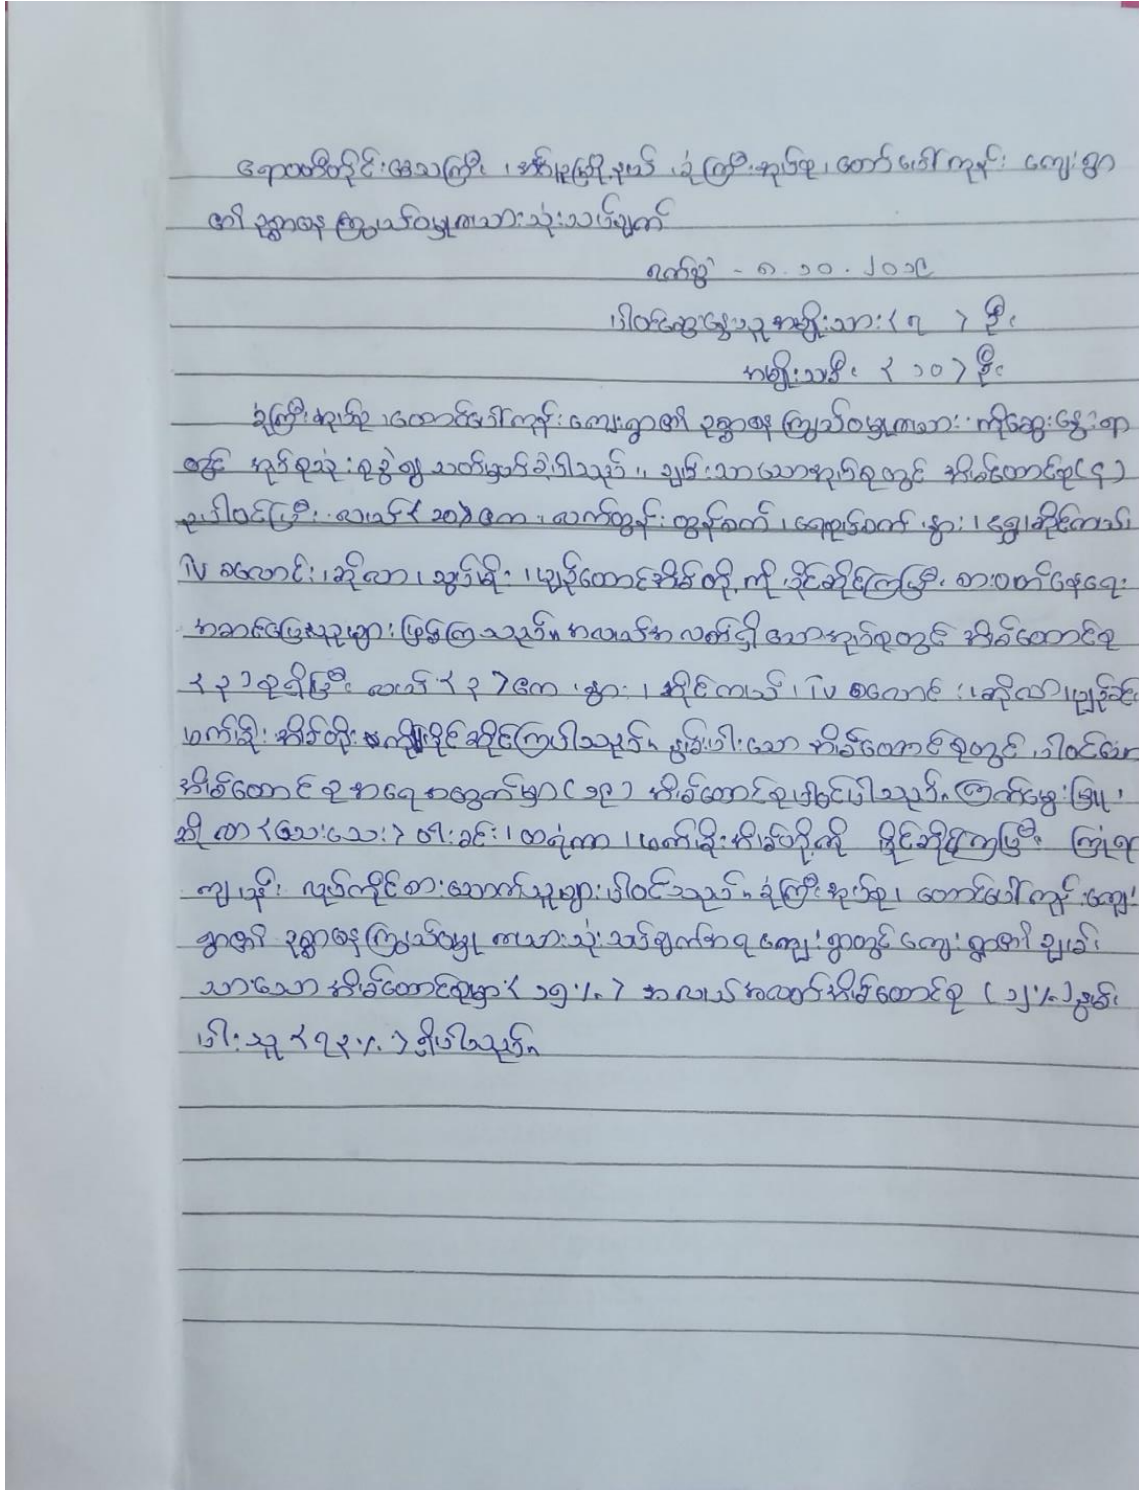 ဧရာဝတီတိုင်းဒေသကြီး ၊ အင်္ဂပူမြို့နယ် ၊ ခုံကြီးအုပ်စု ၊ တောင်ပေါ်ကုန်း ကျေးရွာ
၏ ဥစ္စာဓန ကြွယ်ဝမှုကသားသုံးသပ်ချက်
ရက်စွဲ - ၈ . ၁၀ . ၂၀၁၉
ပါဝင်ဆွေးနွေးသူ အမျိုးသား < ၇ > ဦး
အမျိုးသမီး < ၁၀ > ဦး
ခုံကြီးအုပ်စု ၊ တောင်ပေါ်ကုန်း ကျေးရွာ၏ ဥစ္စာဓန ကြွယ်ဝမှုကသား ကိုဆွေးနွေးရာ
တွင် အုပ်စုသုံးစုခွဲ၍ သတ်မှတ်ခဲ့ပါသည်။ ချမ်းသာသောအုပ်စုတွင် အိမ်ထောင်စု (၄)
စုပါဝင်ပြီး လယ် < ၁၀ > ဧက ၊ လက်တွန်းထွန်စက် ၊ ရေစုပ်စက် ၊ နွား ၊ ရွှေ ၊ ဆိုင်ကယ် ၊
TV စလောင်း ၊ ဆိုလာ ၊ သွပ်မိုး ၊ ပျဉ်ထောင်အိမ်တို့ကို ပိုင်ဆိုင်ကြပြီး စားဝတ်နေရေး
အဆင်ပြေသူများ ဖြစ်ကြသည်။ အလယ်အလတ်ရှိသောအုပ်စုတွင် အိမ်ထောင်စု
< ၃ > စုရှိပြီး လယ် < ၃ > ဧက ၊ နွား ၊ ဆိုင်ကယ် ၊ TV စလောင်း ၊ ဆိုလာ ၊ ပျဉ်ခင်း
ဖက်မိုး အိမ်တို့ကို ပိုင်ဆိုင်ကြပါသည်။ နွမ်းပါးသော အိမ်ထောင်စုတွင် ပါဝင်သော
အိမ်ထောင်စု အရေအတွက်မှာ (၁၉) အိမ်ထောင်စုပါဝင်ပါသည်။ ကြက်မွေးမြူ ၊
ဆိုလာ < သေးသေး > ဝါးခင်း ၊ ထရံကာ ၊ ဖက်မိုးအိမ်တို့ကို ပိုင်ဆိုင်ကြပြီး ကြုံရာ
ကျပန်း လုပ်ကိုင်စားသောက်သူများပါဝင်သည်။ ခုံကြီးအုပ်စု ၊ တောင်ပေါ်ကုန်း ကျေး
ရွာ၏ ဥစ္စာဓနကြွယ်ဝမှု ကသားသုံးသပ်ချက်အရ ကျေးရွာတွင် ကျေးရွာ၏ ချမ်း
သာသော အိမ်ထောင်စုမှာ < ၁၅ % > အလယ်အလတ်အိမ်ထောင်စု (၁၂ %) နွမ်း
ပါးသူ < ၇၃ % > ရှိပါသည်။